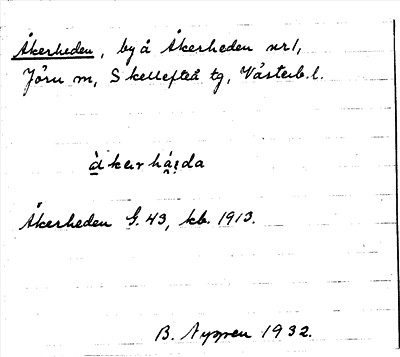 Åkerheden, by å Åkerheden nr 1,
Jörn sn, Skellefteå tg, Västerb. l.
åkerhäida
Åkerheden G. 43, kb. 1913.
B. 1932.